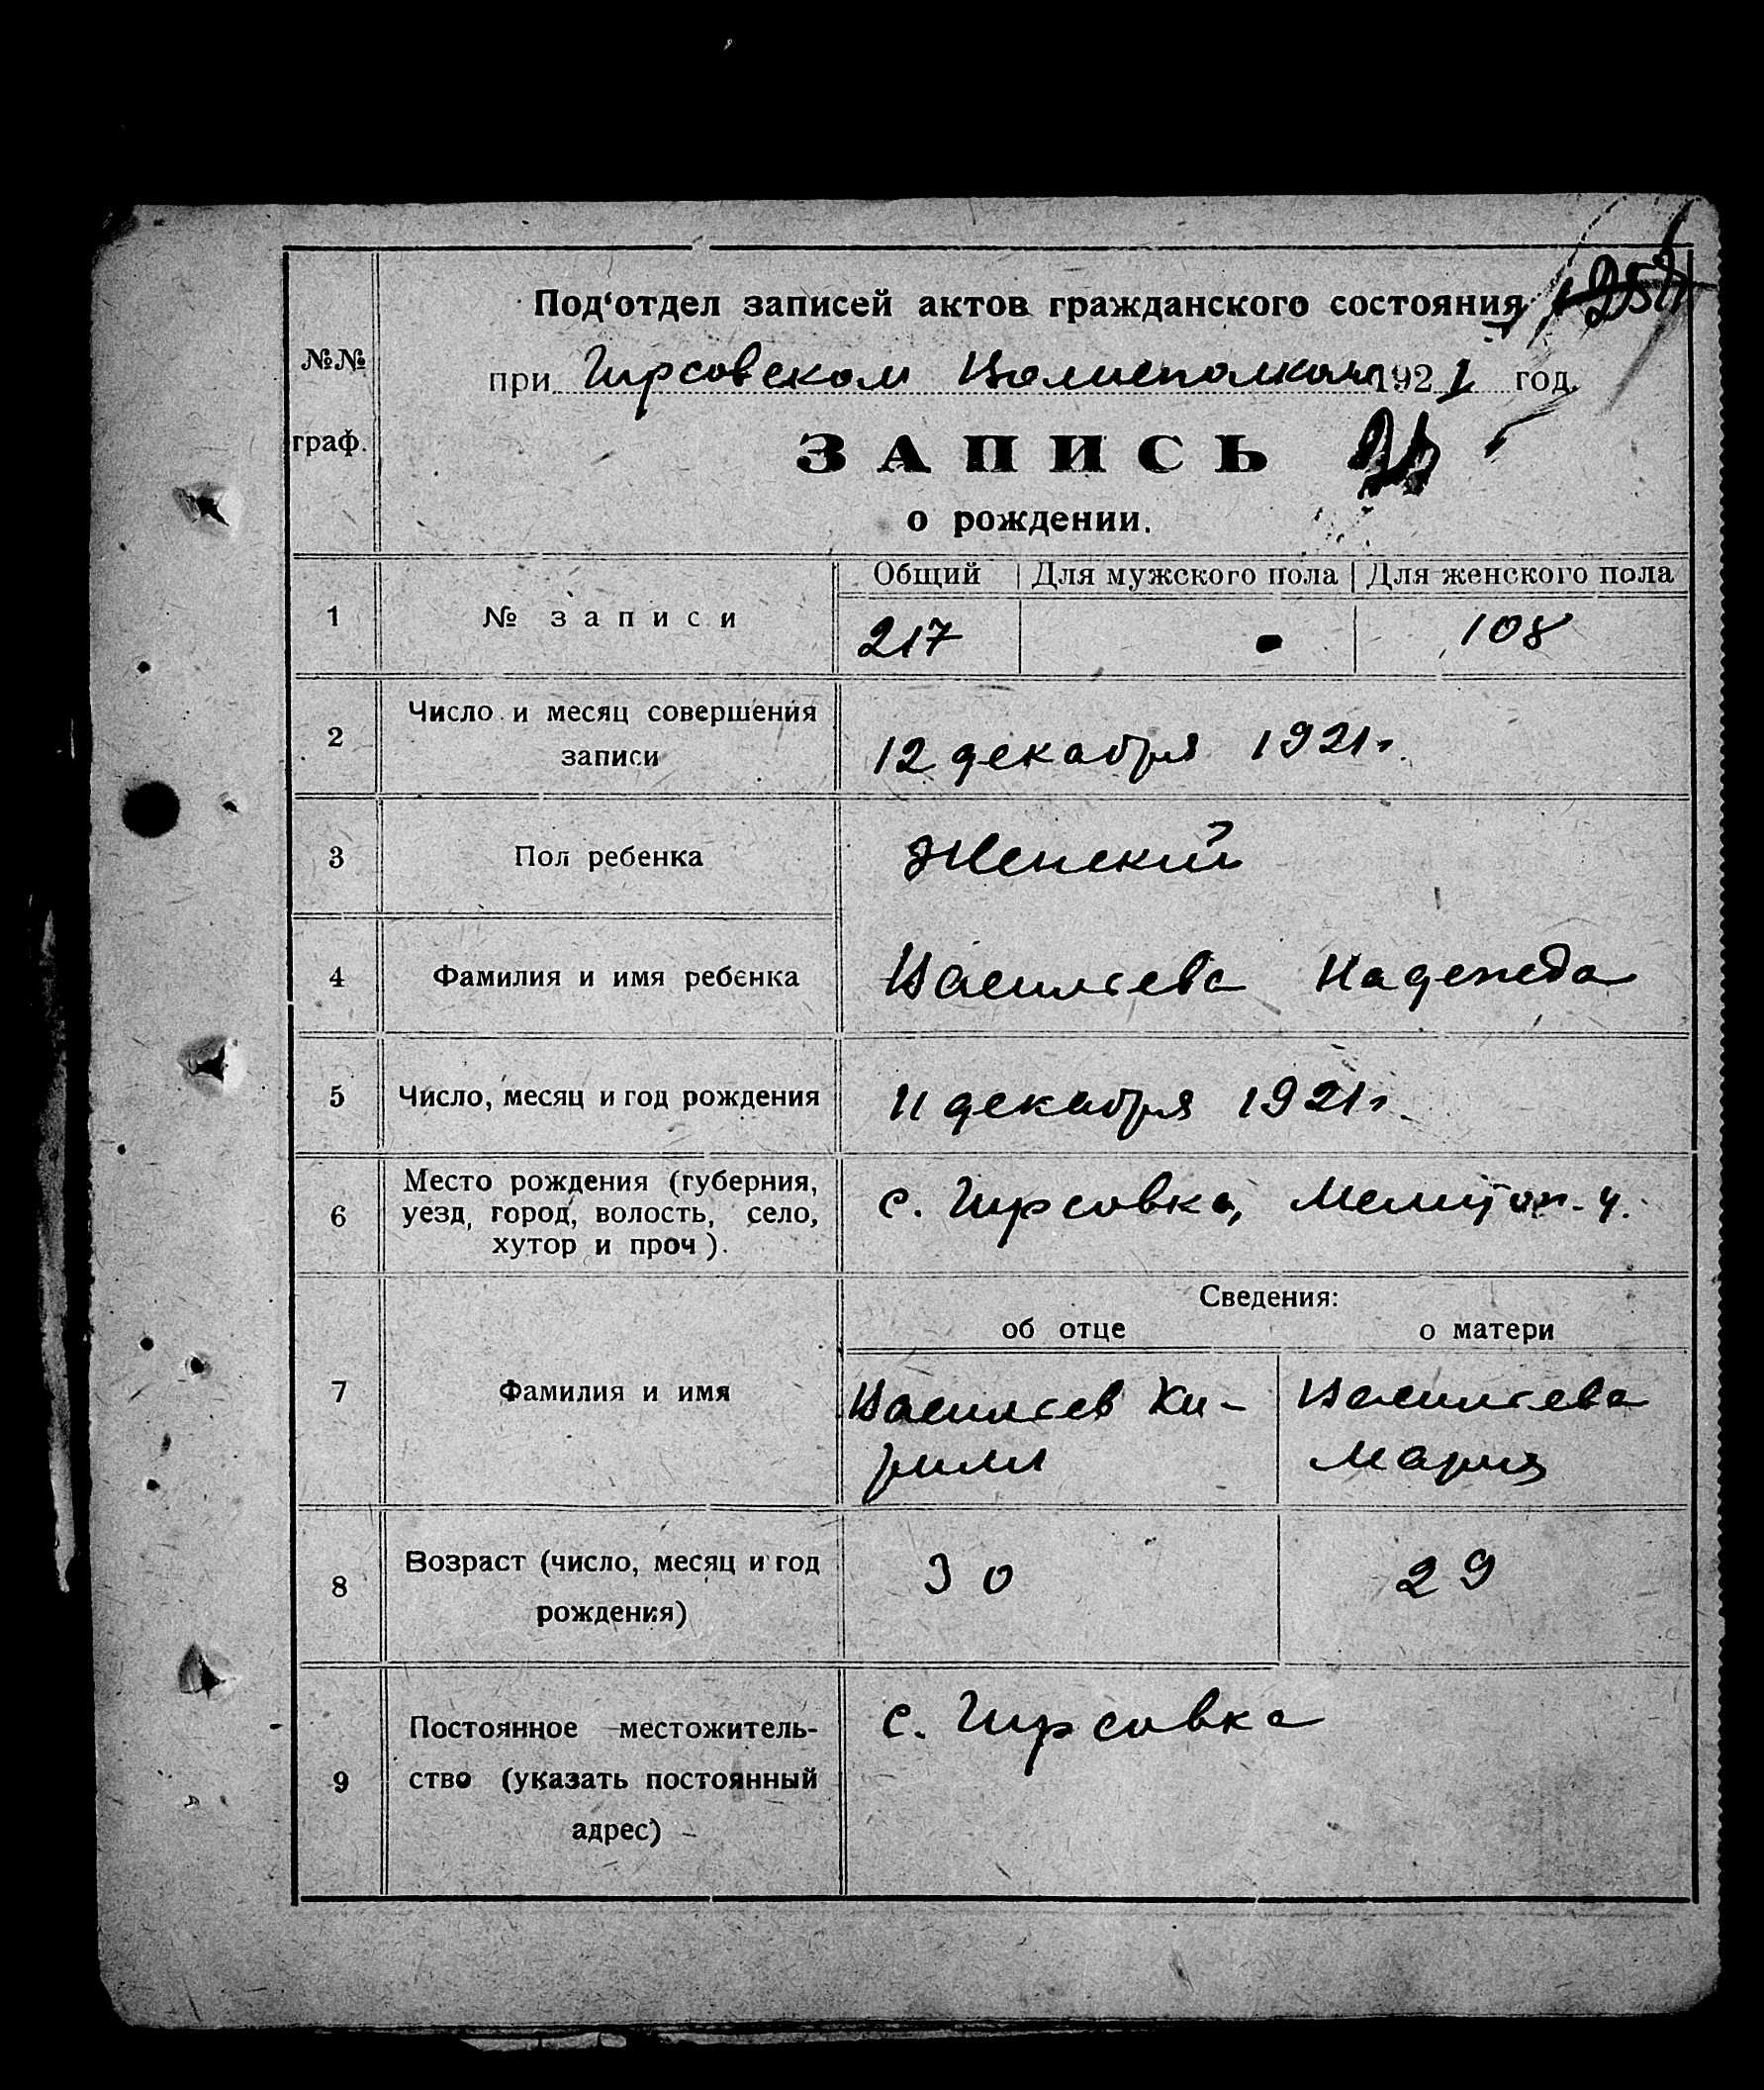 Под‘отдел записей актов гражданского состояния
при Гирсовском Волисполкоме 1921 год.
№№
граф.
ЗАПИСЬ
о рождении.
Общий Для мужского пола Для женского пола
1 № записи 217 108
2 Число и месяц совершения
записи
12 декабря 1921 г.
3 Пол ребенка Женский
4 Фамилия и имя ребенка Васильева Надежда
5 Число, месяц и год рождения 11 декабря 1921 г.
6 Место рождения (губерния,
уезд, город, волость, село,
хутор и проч).
с. Гирсовка, Мелитоп. у.
Сведения:
об отце о матери
7 Фамилия и имя
Васильев Ки-
рилл
Васильева
Мария
8 Возраст (число, месяц и год
рождения)
30 29
9 Постоянное местожитель-
ство (указать постоянный
адрес)
с. Гирсовка